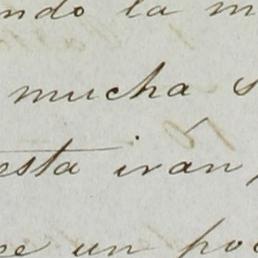 ndo la m
mucha s
esta irán
pe un poc